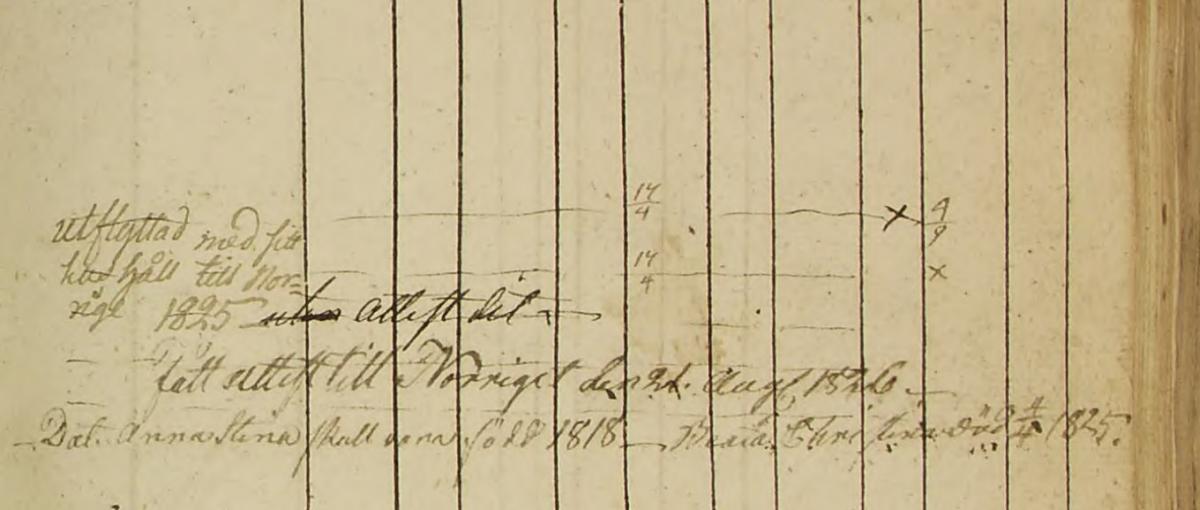 17/4 x 4/9
utflyttad med sitt
hushåll till Nor- 17/4 x
rige 1825 utan attest dit
fått attest till Norriget den 21. Aug. 1826.
Dot. Anna Stina skall vara född 1818 Christina död 4/4 1825.